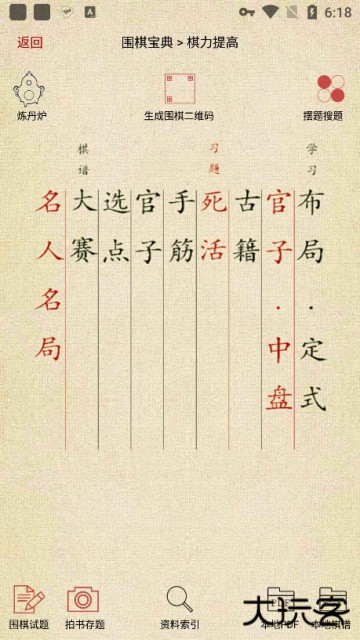 6:18
返回
围棋宝典 > 棋力提高
炼丹炉
生成围棋二维码
摆题搜题
学习
习题
棋谱
布局·定式
官子·中盘
古籍
死活
手筋
官子
选点
大赛
名人名局
围棋试题
拍书存题
资料索引
本地PDF
本地棋谱
大玩客